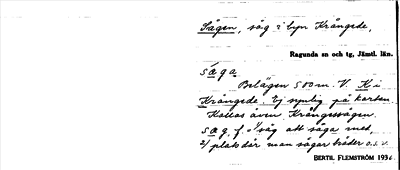 Sågen, såg i byn Krångede,
Ragunda sn och tg, Jämtl. län.
såga
Belägen 500 m. V. K i
Krångede. Ej synlig på kartan.
Kallas även Krångessågen.
såg, f. 1/ såg att såga med,
2/ plats där man sågar bräder o.s.v.
BERTIL FLEMSTRÖM 1936.